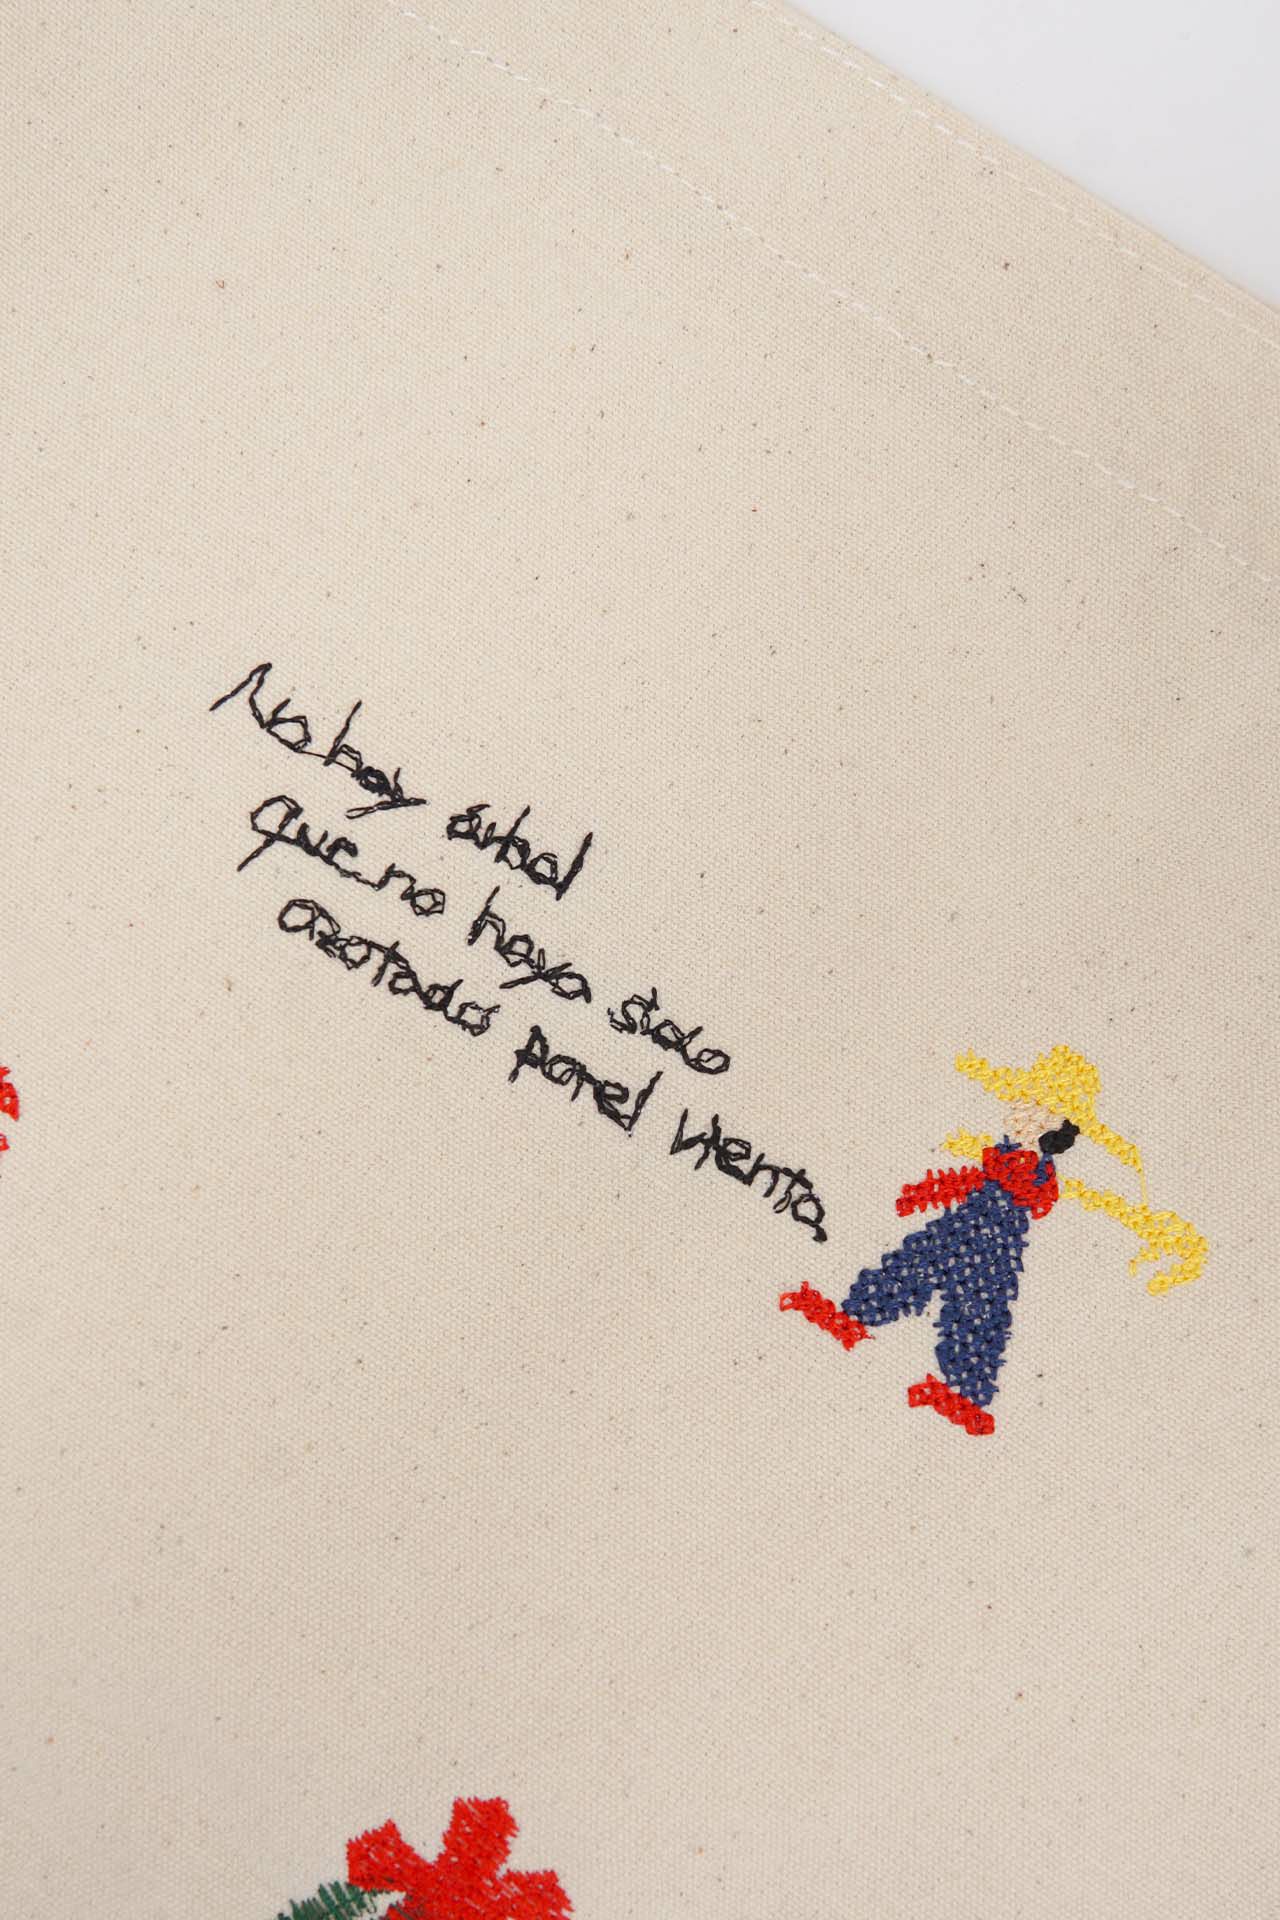 No hay árbol
que no haya sido
azotado por el viento,